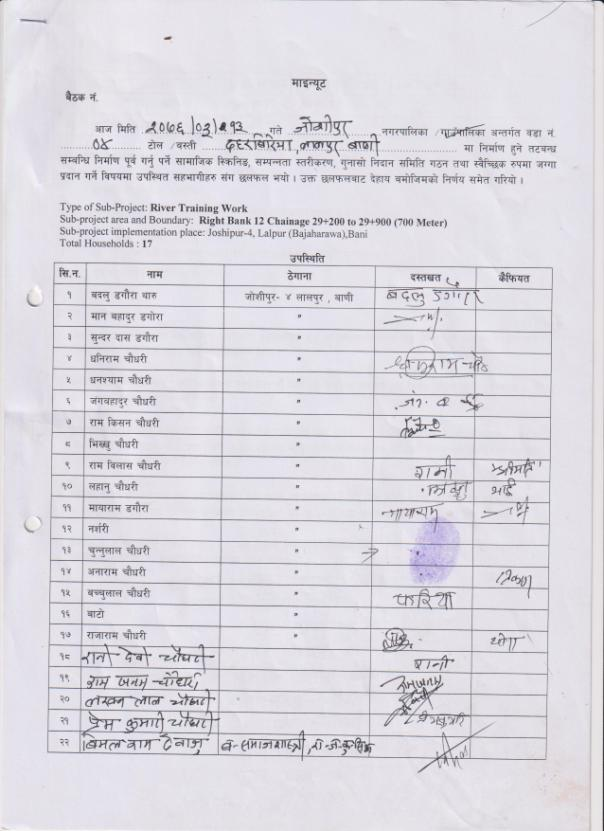 माइन्यूट
बैठक नं.
आज मिति २०७६/०३/१३ गते जोशीपुर नगरपालिका /गाउँपालिका अन्तर्गत वडा नं.
०४ टोल /वस्ती लालपुर बाणी मा निर्माण हुने तटबन्ध
सम्बन्धि निर्माण पूर्व गर्नु पर्ने सामाजिक स्क्रिनिङ, सम्पन्नता स्तरीकरण, गुनासो निदान समिति गठन तथा स्वैच्छिक रुपमा जग्गा
प्रदान गर्ने विषयमा उपस्थित सहभागीहरु संग छलफल भयो । उक्त छलफलबाट देहाय बमोजिमको निर्णय समेत गरियो ।
Type of Sub-Project: River Training Work
Sub-project area and Boundary: Right Bank 12 Chainage 29+200 to 29+900 (700 Meter)
Sub-project implementation place: Joshipur-4, Lalpur (Bajaharawa),Bani
Total Households : 17
उपस्थिति
सि.न. नाम ठेगाना दस्तखत कैफियत
१ बदलु डगौरा थारु जोशीपुर- ४ लालपुर , बाणी बदलु डगौरा
२ मान बहादुर डगोरा "
३ सुन्दर दास डगौरा "
४ धनिराम चौधरी "
५ धनश्याम चौधरी "
६ जंगबहादुर चौधरी "
७ राम किसन चौधरी "
८ भिख्खु चौधरी "
९ राम बिलास चौधरी " रामी श्रीमति
१० लहानु चौधरी " भाई
११ मायाराम डगौरा " मायाराम
१२ नशंरी "
१३ चुन्नुलाल चौधरी "
१४ अनाराम चौधरी "
१५ बच्चुलाल चौधरी " फरिया
१६ बाटो "
१७ राजाराम चौधरी "
१८ रानी देवी चौधरी रानी
१९ राम जनम चौधरी रामजनम
२० लखन लाल चौधरी
२१ प्रेम कुमारी चौधरी
२२ बिमल राम देवाजु व-समाजशास्त्री